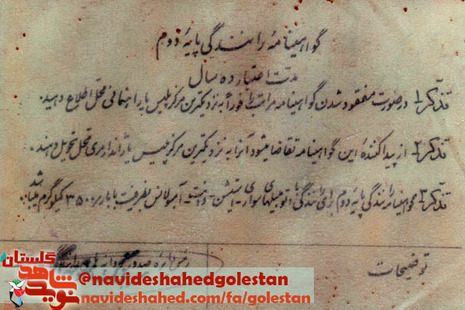 گواهینامه رانندگی پایه دوم
مدت اعتبار ده سال
تذکر۱ درصورت مفقود شدن گواهینامه مراتب را فوراً به نزدیکترین مرکز پلیس یا راهنمائی محل اطلاع دهید.
تذکر۲ از پیدا کننده این گواهینامه تقاضا میشود آنرا به نزدیکترین مرکز پلیس یا ژاندارمری محل تحویل دهند.
تذکر۳ گواهینامه رانندگی پایه دوم برای رانندگی با اتومبیلهای سواری - استیشن - وانت - آمبولانس بظرفیت با بار ۳۵۰۰ کیلوگرم میباشد
توضیحات
گلستان
شاهد
نوید
@navideshahedgolestan
navideshahed.com/fa/golestan